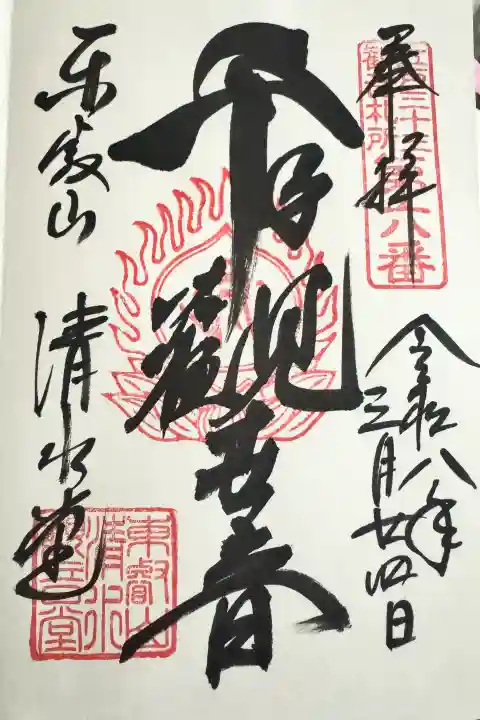 奉拝
三十三
観音札所
第六番
令和八年
三月廿四日
千手
觀世音
東叡山
清水堂
東叡山
清水
觀音堂